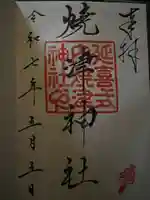 奉拝
焼津神社
延喜式内
焼津神社
令和七年三月三日